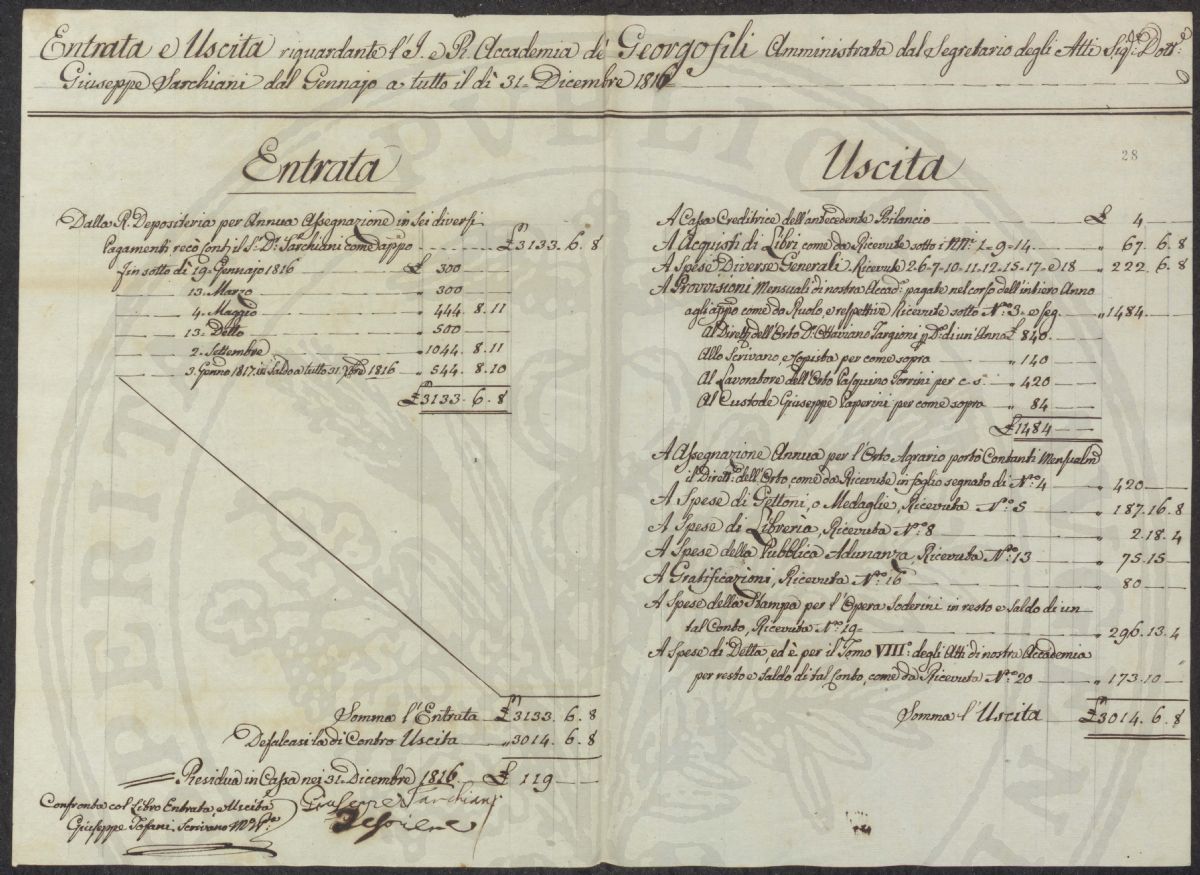 Entrata e Uscita riguardante l'I. e R. Accademia de Georgofili Amministrata dal Segretario degli Atti Sigr. Dottr.
Giuseppe Sarchiani dal Gennajo a tutto il dì 31. Dicembre 1816
28
Entrata
Dalla R. Depositeria per Annua Assegnazione in Sei diversi
Pagamenti recò Conti il Sr. Dr. Sarchiani come appo £ 3133. 6. 8
fin sotto dì 19. Gennajo 1816 £ 300
13. Marzo " 300
4. Maggio " 444. 8. 11
13. Detto " 500
2. Settembre " 1044. 8. 11
3. Genno 1817. in Saldo a tutto 31. Xbre 1816 " 544. 8. 10
£ 3133. 6. 8
Somma l'Entrata £ 3133. 6. 8
Defalcasi la di Contro Uscita " 3014. 6. 8
Residua in Cassa nei 31. Dicembre 1816. £ 119
Confronta col Libro Entrata, e Uscita
Giuseppe Tofani, Scrivano
Giuseppe Sarchiani
Uscita
A Cassa Creditrice dell'antecedente Bilancio £ 4
A Acquisti di Libri come da Ricevute sotto i NNi. 1-9-14 " 67. 6. 8
A Spese Diverse Generali Ricevute 2-6-7-10-11-12-15-17- e 18 " 222. 6. 8
A Provvisioni Mensuali di nostra Accada. pagate nel corso dell'intiero Anno
agli appo come da Ruolo, e respettive Ricevute sotto No. 3. e seg. " 1484
Al Dirette. dell'Orto Dr. Ottaviano Targioni pr. Pe. di un'Anna £ 840
Allo Scrivano, e Copista per come sopra " 140
Al Lavoratore dell'Orto Pasquino Torrini per c. s. " 420
Al Custode Giuseppe Paperini per come sopra " 84
£ 1484
A Assegnazione Annua per l'Orto Agrario portò Contanti Mensualm
il Dirette. dell'Orto, come da Ricevute in foglio segnato di No. 4 " 420
A Spese di Gettoni, o Medaglie, Ricevuta No. 5 " 187. 16. 8
A Spese di Libreria, Ricevuta No. 8 " 2. 18. 4
A Spese della Pubblica Adunanza, Ricevuta No. 13 " 75. 15
A Gratificazioni, Ricevuta No. 16 " 80
A Spese della Stampa per l'Opera Soderini in resto e Saldo di un
tal Conto, Ricevuta No. 19 " 296. 13. 4
A Spese di Detta, ed è per il Tomo VIII. degli Atti di nostra Accademia
per resto e Saldo di tal Conto, come da Ricevuta No. 20 " 173. 10
Somma l'Uscita £ 3014. 6. 8